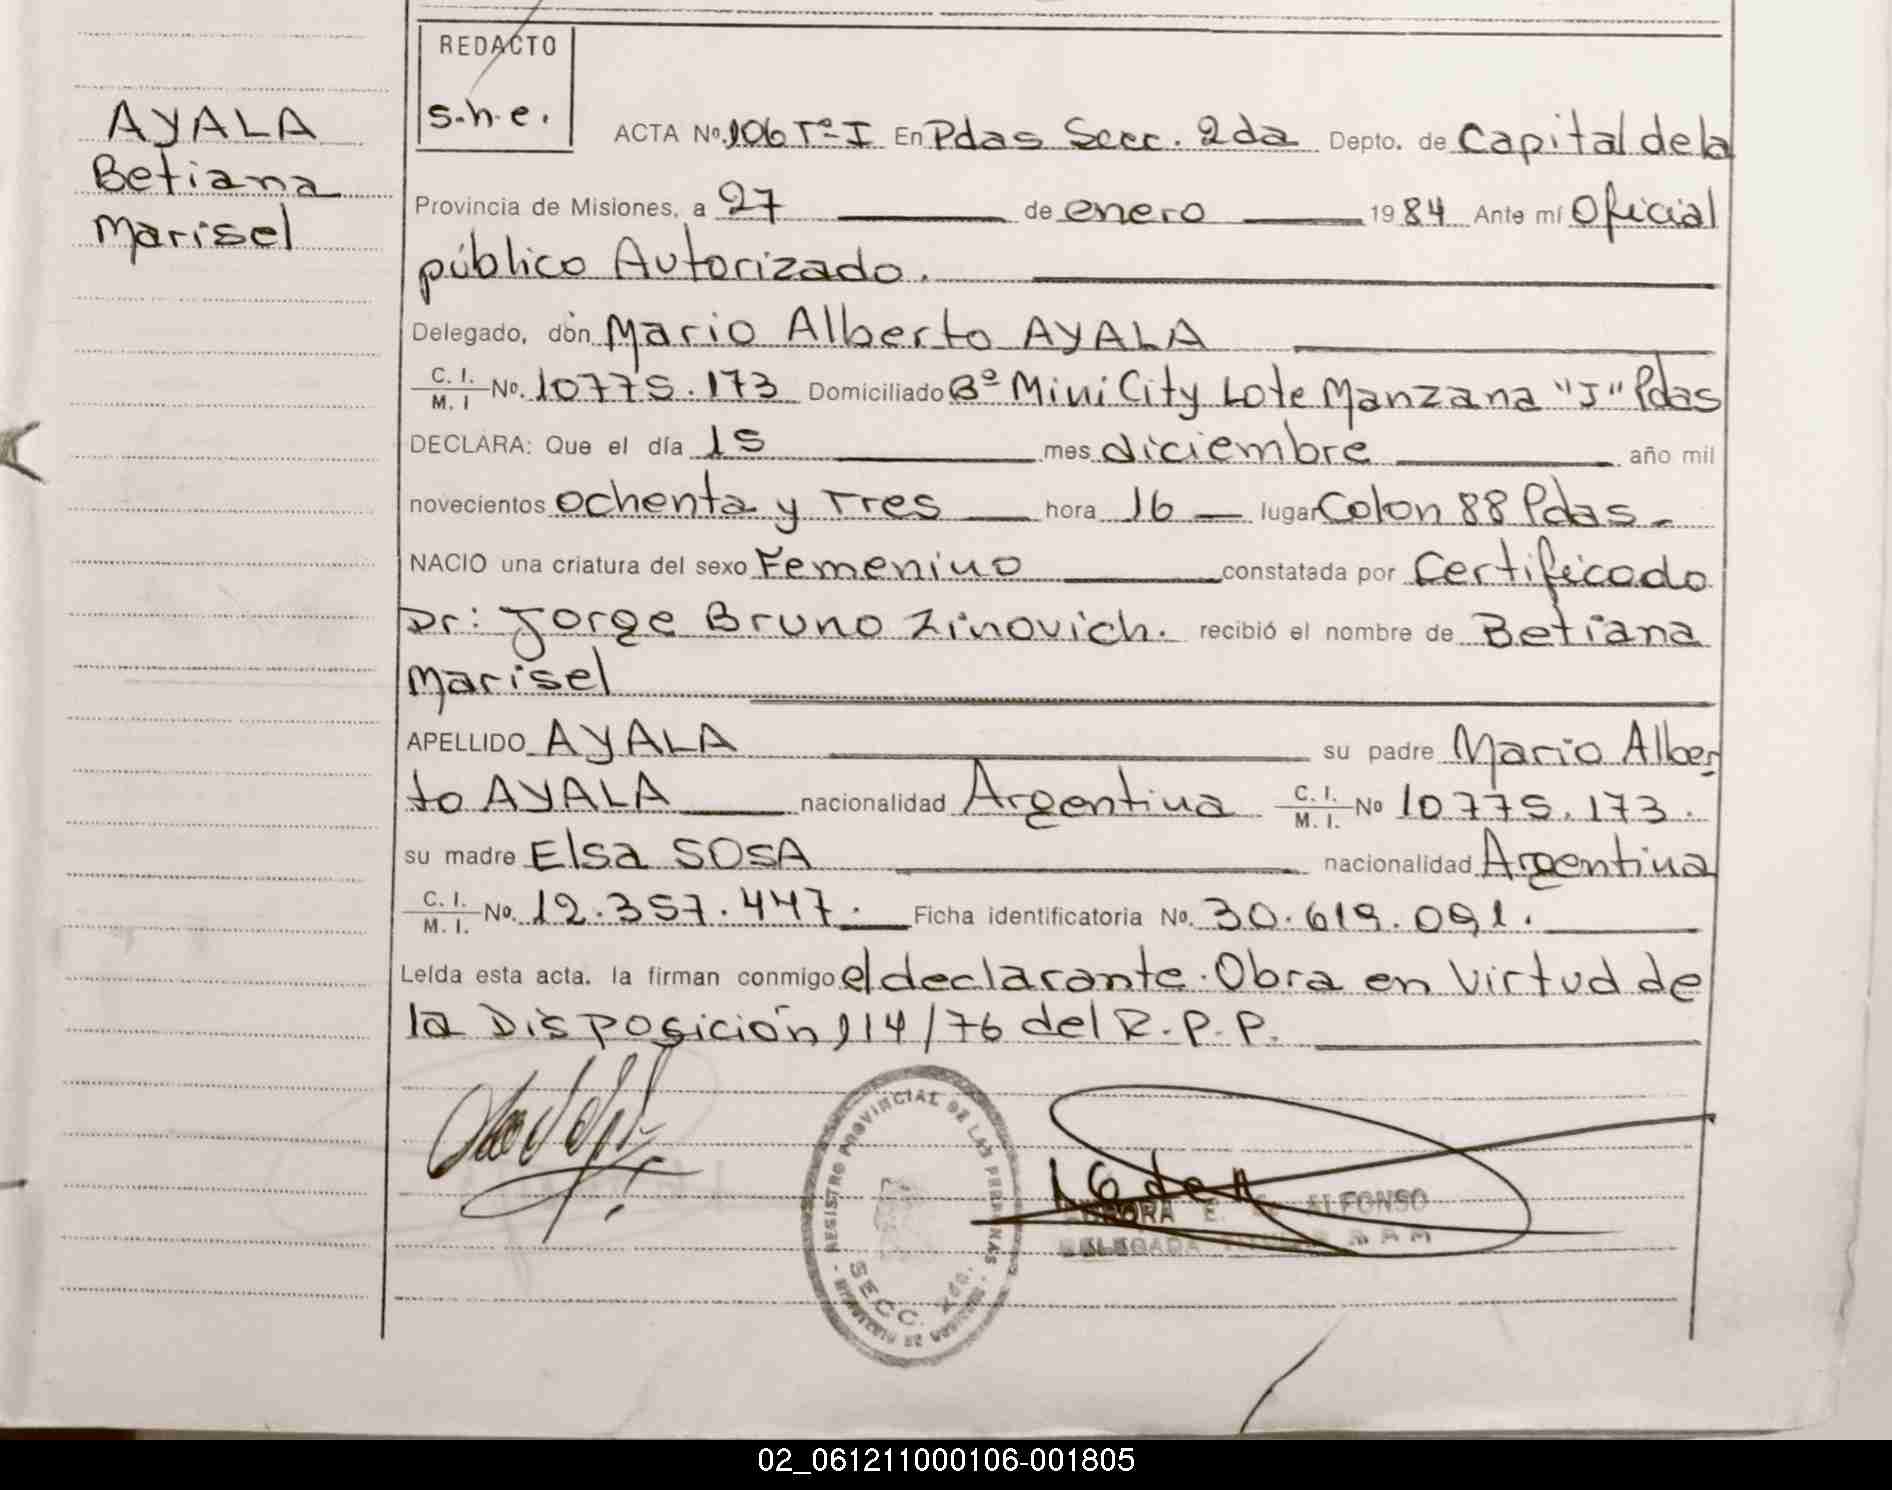 REDACTO
s.h.e.
AYALA
Betiana
Marisel
ACTA No. 106 Tº I En Pdas Secc. 2da Depto. de Capital de la
Provincia de Misiones, a 27 de enero 1984 Ante mí Oficial
público Autorizado.
Delegado, don Mario Alberto AYALA
C. I. / M. I No. 10775.173 Domiciliado Bº Mini City Lote Manzana "J" Pdas
DECLARA: Que el día 15 mes diciembre año mil
novecientos ochenta y Tres hora 16 lugar Colon 88 Pdas.
NACIO una criatura del sexo Femenino constatada por Certificado
Dr: Jorge Bruno Zinovich. recibió el nombre de Betiana
Marisel
APELLIDO AYALA su padre Mario Alber
to AYALA nacionalidad Argentina C. I. / M. I. No 10775.173.
su madre Elsa SOSA nacionalidad Argentina
C. I. / M. I. No. 12.357.447. Ficha identificatoria No. 30.619.091.
Leída esta acta. la firman conmigo el declarante. Obra en virtud de
la Disposición 114/76 del R.P.P.
REGISTRO PROVINCIAL DE LAS PERSONAS
SECC. 2da.
ALFONSO
DELEGADA
02_061211000106-001805